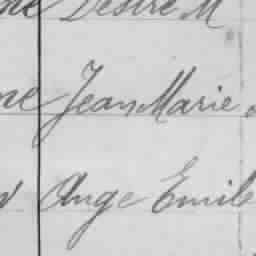 Désiré M
Jean Marie
Ange Emile